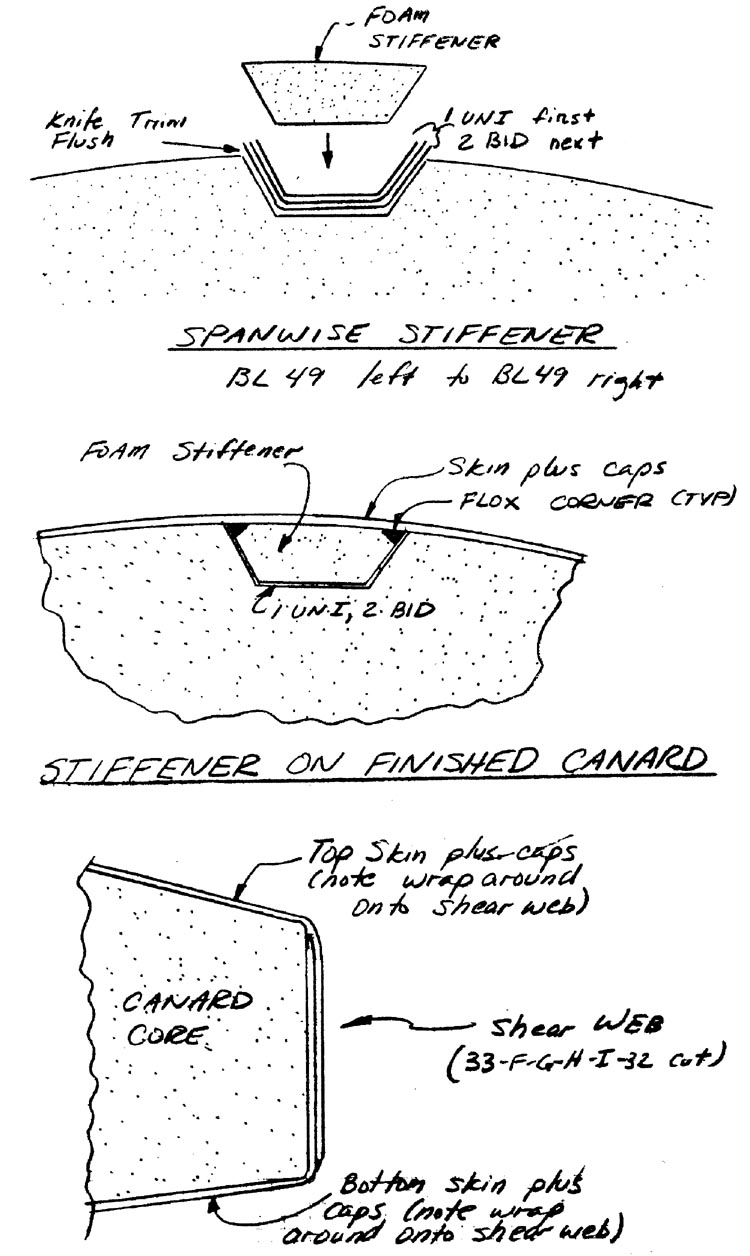 FOAM
STIFFENER
Knife Trim
Flush
1 UNI first
2 BID next
SPANWISE STIFFENER
BL 49 left to BL49 right
FOAM Stiffener
Skin plus caps
FLOX CORNER (TYP)
1 UNI, 2 BID
STIFFENER ON FINISHED CANARD
Top Skin plus caps
(note wrap around
onto shear web)
CANARD
CORE
Shear WEB
(33-F-G-H-I-32 cut)
Bottom skin plus
caps (note wrap
around onto shear web)